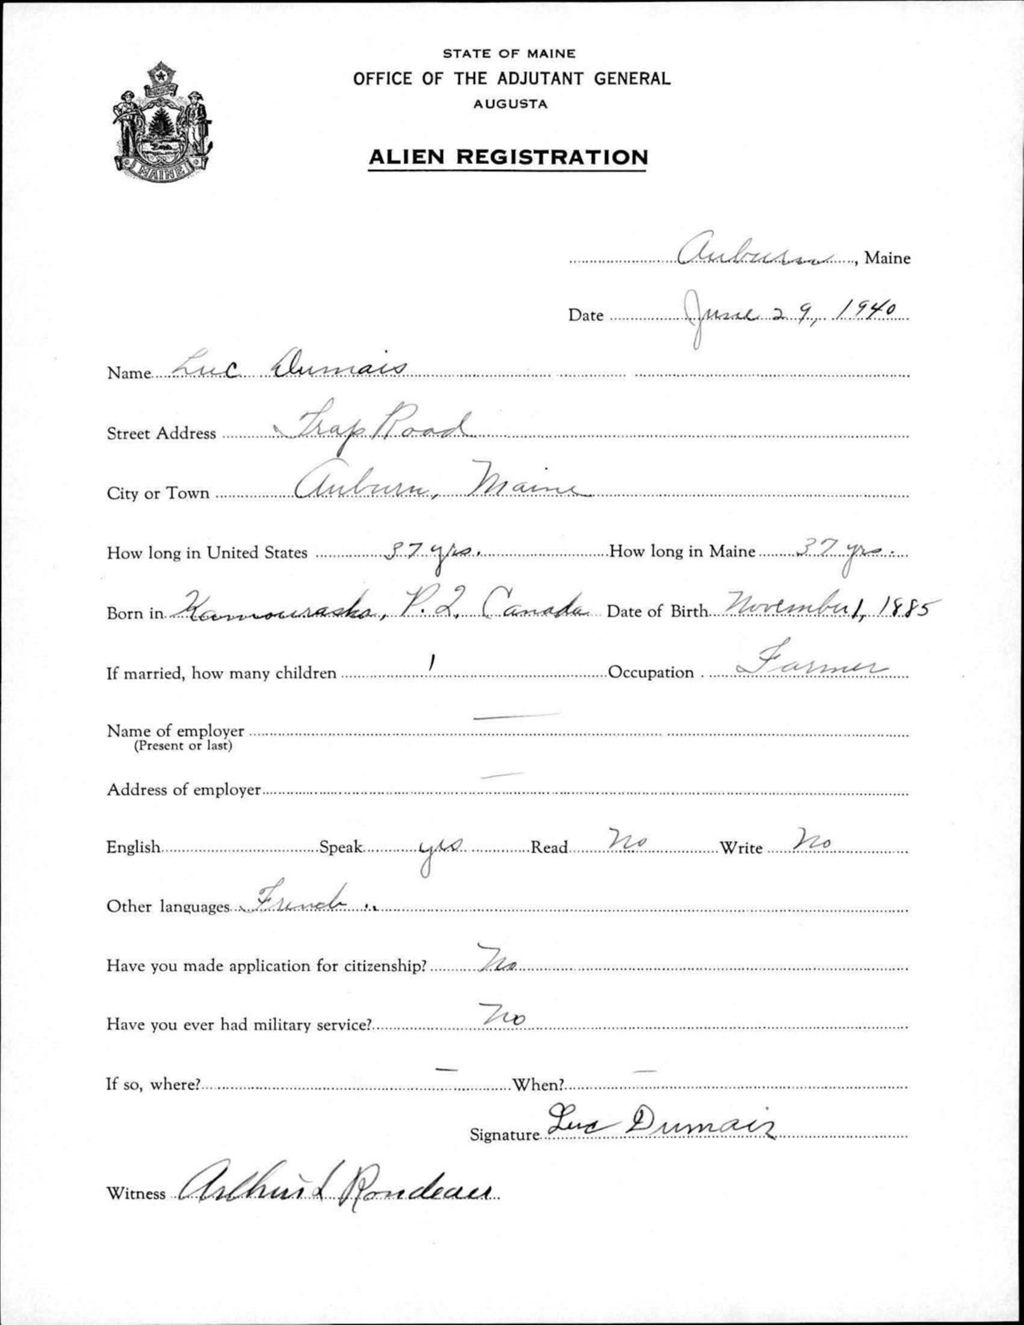 STATE OF MAINE
OFFICE OF THE ADJUTANT GENERAL
AUGUSTA
ALIEN REGISTRATION
MAINE
Auburn, Maine
Date June 29, 1940
Name Luc Dumais
Street Address Trap Road
City or Town Auburn, Maine
How long in United States 37 yrs. How long in Maine 37 yrs.
Born in Kamouraska, P. Q. Canada Date of Birth November 1, 1885
If married, how many children 1 Occupation Farmer
Name of employer —
(Present or last)
Address of employer —
English Speak yes Read No Write No
Other languages French
Have you made application for citizenship? No
Have you ever had military service? No
If so, where? — When? —
Signature Luc Dumais
Witness Arthur L Rondeau